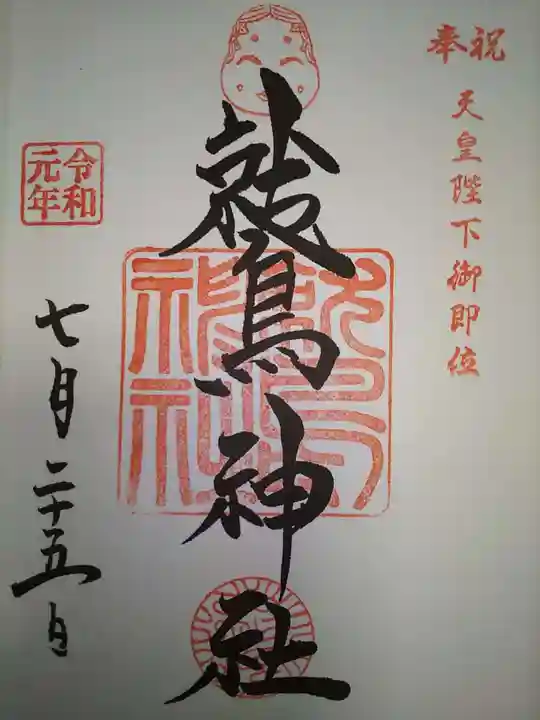 奉祝
天皇陛下御即位
鷲神社
令和
元年
七月二十五日